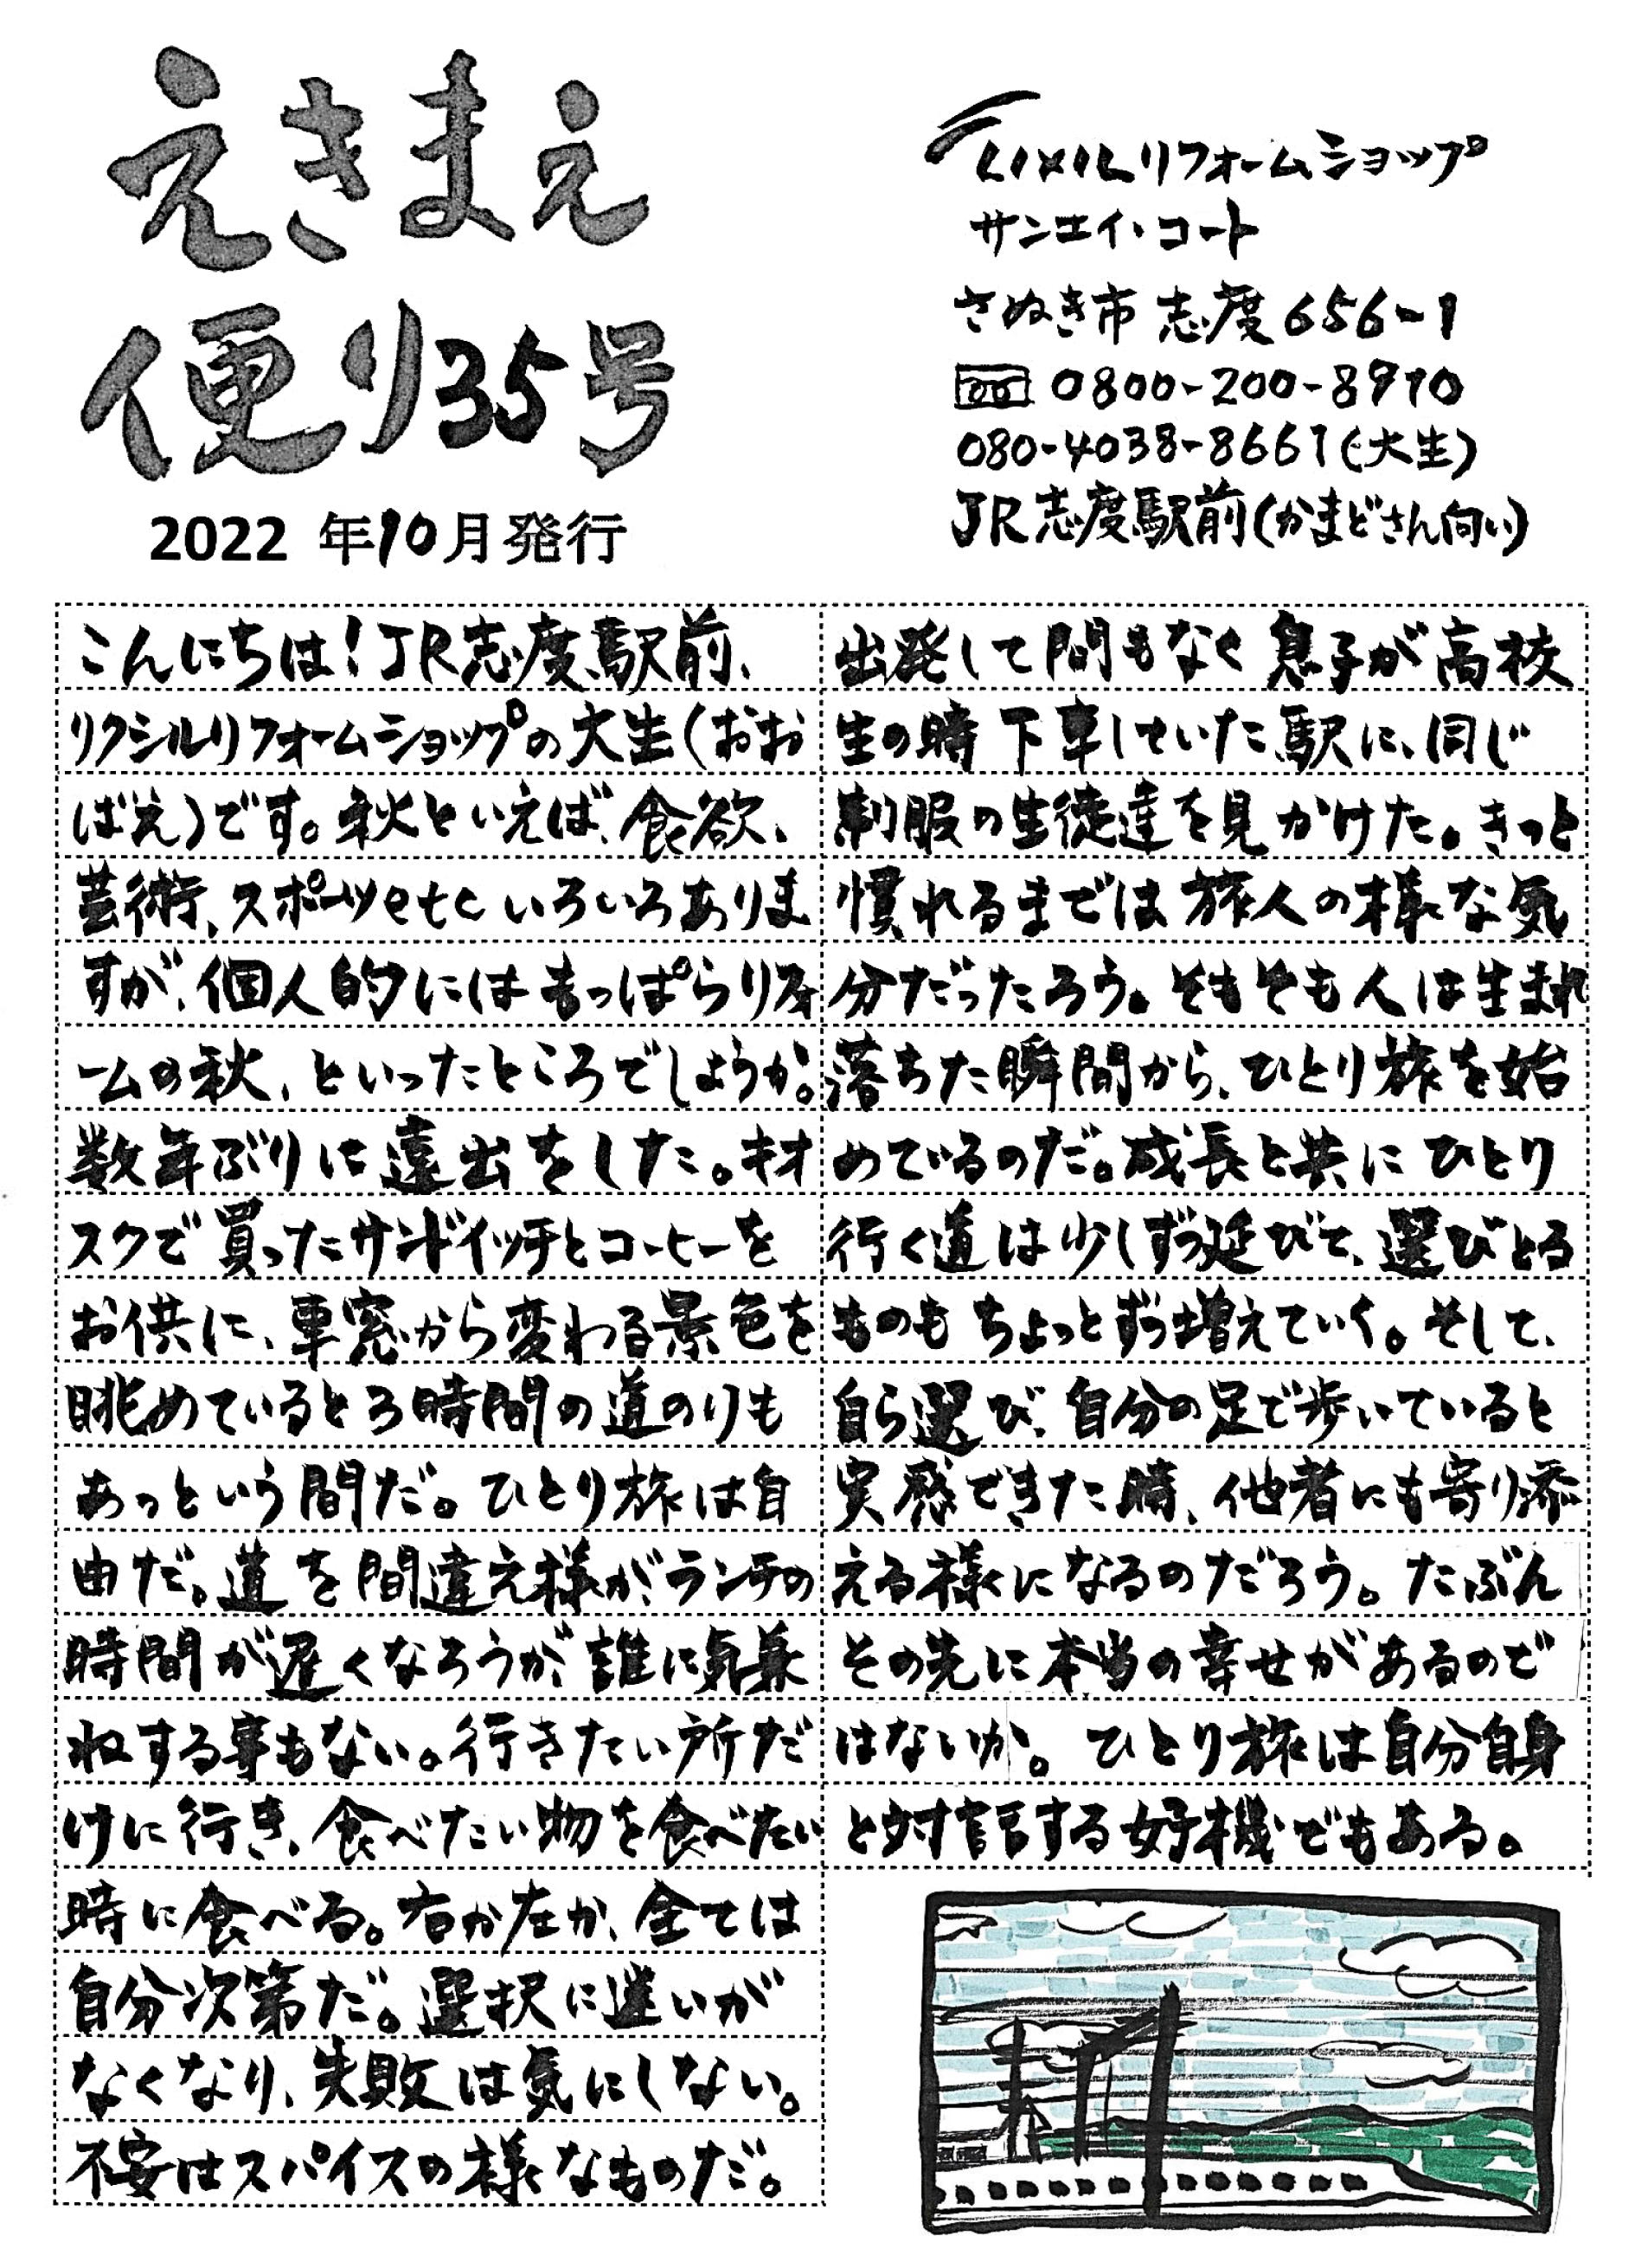 えきまえ
便り35号
2022 年10月発行
LIXILリフォームショップ
サンエイ・コート
さぬき市志度656-1
0800-200-8970
080-4038-8661(大生)
JR志度駅前(かまどさん向い)
こんにちは!JR志度駅前、
リクシルリフォームショップの大生(おお
ばえ)です。秋といえば、食欲、
芸術、スポーツetcいろいろありま
すが、個人的にはもっぱらリフォ
ームの秋、といったところでしょうか。
数年ぶりに遠出をした。キオ
スクで買ったサンドイッチとコーヒーを
お供に、車窓から変わる景色を
眺めていると3時間の道のりも
あっという間だ。ひとり旅は自
由だ。道を間違え様が、ランチの
時間が遅くなろうが、誰に気兼
ねする事もない。行きたい所だ
けに行き、食べたい物を食べたい
時に食べる。右か左か、全ては
自分次第だ。選択に迷いが
なくなり、失敗は気にしない。
不安はスパイスの様なものだ。
出発して間もなく息子が高校
生の時下車していた駅に、同じ
制服の生徒達を見かけた。きっと
慣れるまでは旅人の様な気
分だったろう。そもそも人は生まれ
落ちた瞬間から、ひとり旅を始
めているのだ。成長と共にひとり
行く道は少しずつ延びて、選びとる
ものもちょっとずつ増えていく。そして、
自ら選び、自分の足で歩いていると
実感できた時、他者にも寄り添
える様になるのだろう。たぶん
その先に本当の幸せがあるので
はないか。ひとり旅は自分自身
と対話する好機でもある。